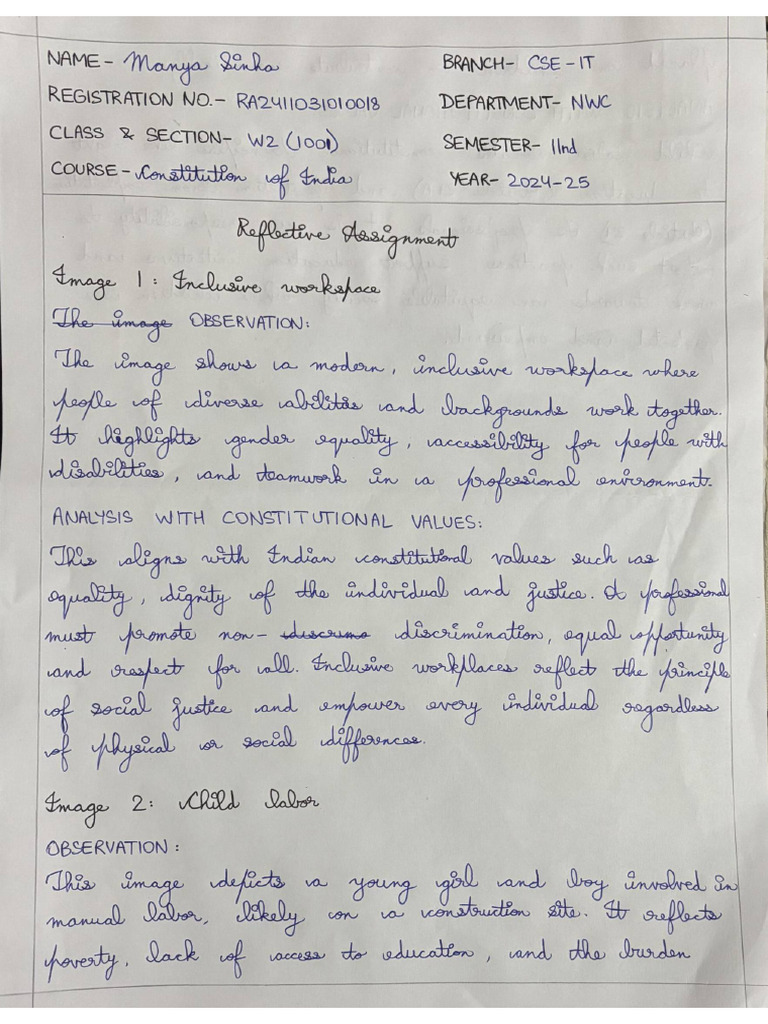 NAME- Manya Sinha BRANCH- CSE-IT
REGISTRATION NO.- RA2411031010018 DEPARTMENT- NWC
CLASS & SECTION- W2 (1001) SEMESTER- IInd
COURSE- Constitution of India YEAR- 2024-25
Reflective Assignment
Image 1: Inclusive workspace
The image OBSERVATION:
The image shows a modern, inclusive workspace where
people of diverse abilities and backgrounds work together.
It highlights gender equality, accessibility for people with
disabilities, and teamwork in a professional environment.
ANALYSIS WITH CONSTITUTIONAL VALUES:
This aligns with Indian constitutional values such as
equality, dignity of the individual and justice. A professional
must promote non- discrimina discrimination, equal opportunity
and respect for all. Inclusive workplaces reflect the principle
of social justice and empower every individual regardless
of physical or social differences.
Image 2: Child labor
OBSERVATION:
This image depicts a young girl and boy involved in
manual labor, likely on a construction site. It reflects
poverty, lack of access to education, and the burden